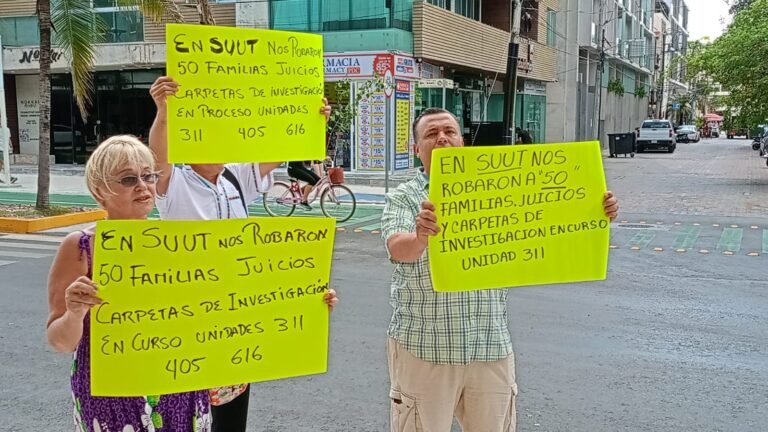 EN SUUT NOS ROBARON
50 FAMILIAS JUICIOS
CARPETAS DE INVESTIGACIÓN
EN PROCESO UNIDADES
311 405 616
EN SUUT NOS ROBARON
50 FAMILIAS JUICIOS
CARPETAS DE INVESTIGACIÓN
EN CURSO UNIDADES 311
405 616
EN SUUT NOS
ROBARON A "50"
FAMILIAS, JUICIOS
Y CARPETAS DE
INVESTIGACION EN CURSO
UNIDAD 311
FARMACIA
PHARMACY